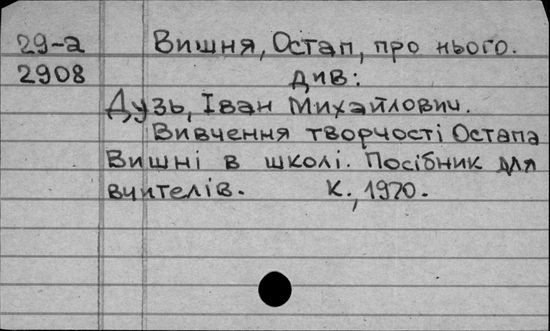 29-а Вишня, Остап, про нього.
2908 див:
Дузь, Іван Михайлович.
Вивчення творчості Остапа
Вишні в школі. Посібник для
вчителів. К., 1970.